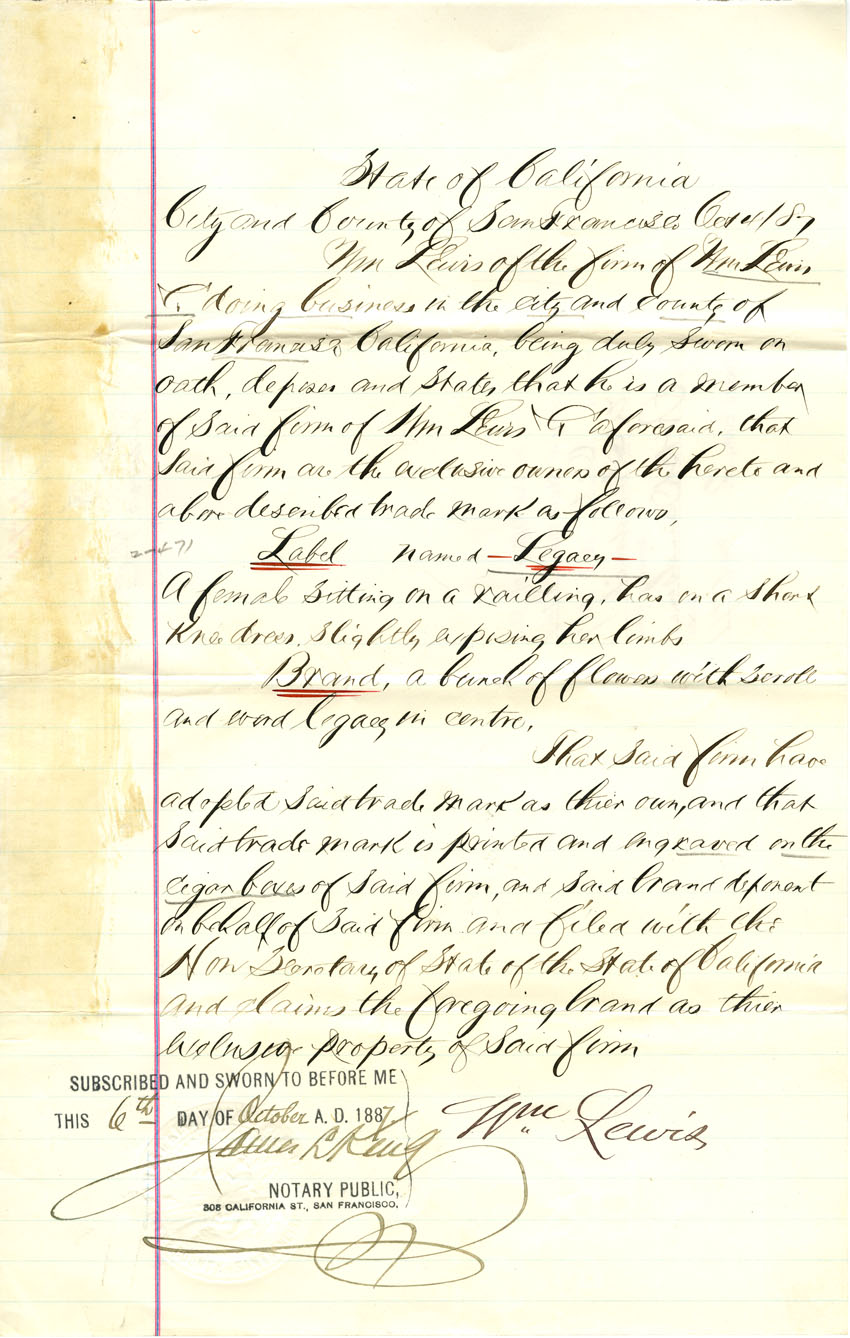 State of California
City and County of San Francisco Oct 4/87
Wm Lewis of the firm of Wm Lewis
& Co doing business in the city and county of
San Francisco California, being duly sworn on
oath, deposes and states that he is a member
of Said firm of Wm Lewis & Co aforesaid, that
Said firm are the exclusive owners of the hereto and
above described trade mark as follows,
Label named - Legacy -
A female Sitting on a railling, has on a short
Knee dress, slightly exposing her limbs
Brand, a bunch of flowers with scroll
and word legacy in centre.
That Said firm have
adopted Said trade mark as thier own, and that
Said trade mark is printed and engraved on the
cigar boxes of Said firm, and Said brand deponent
on behalf of Said firm and filed with the
Hon Secretary of State of the State of California
and claims the foregoing brand as thier
exclusive property of Said firm
SUBSCRIBED AND SWORN TO BEFORE ME
THIS 6th DAY OF October A. D. 1887
Wm Lewis
James L King
NOTARY PUBLIC,
308 CALIFORNIA ST., SAN FRANCISCO.